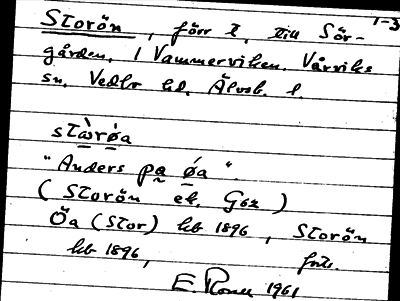 1-3
Storön, förr t. till Sör-
gården. I Vammerviken. Vårviks
sn. Vedbo hd. Älvsb. l.
stὼrǿa
"Anders pa øá".
(Storön ek. Göz)
Öa (Stor) hb 1896, Storön
hb 1896, forts.
E. 1961